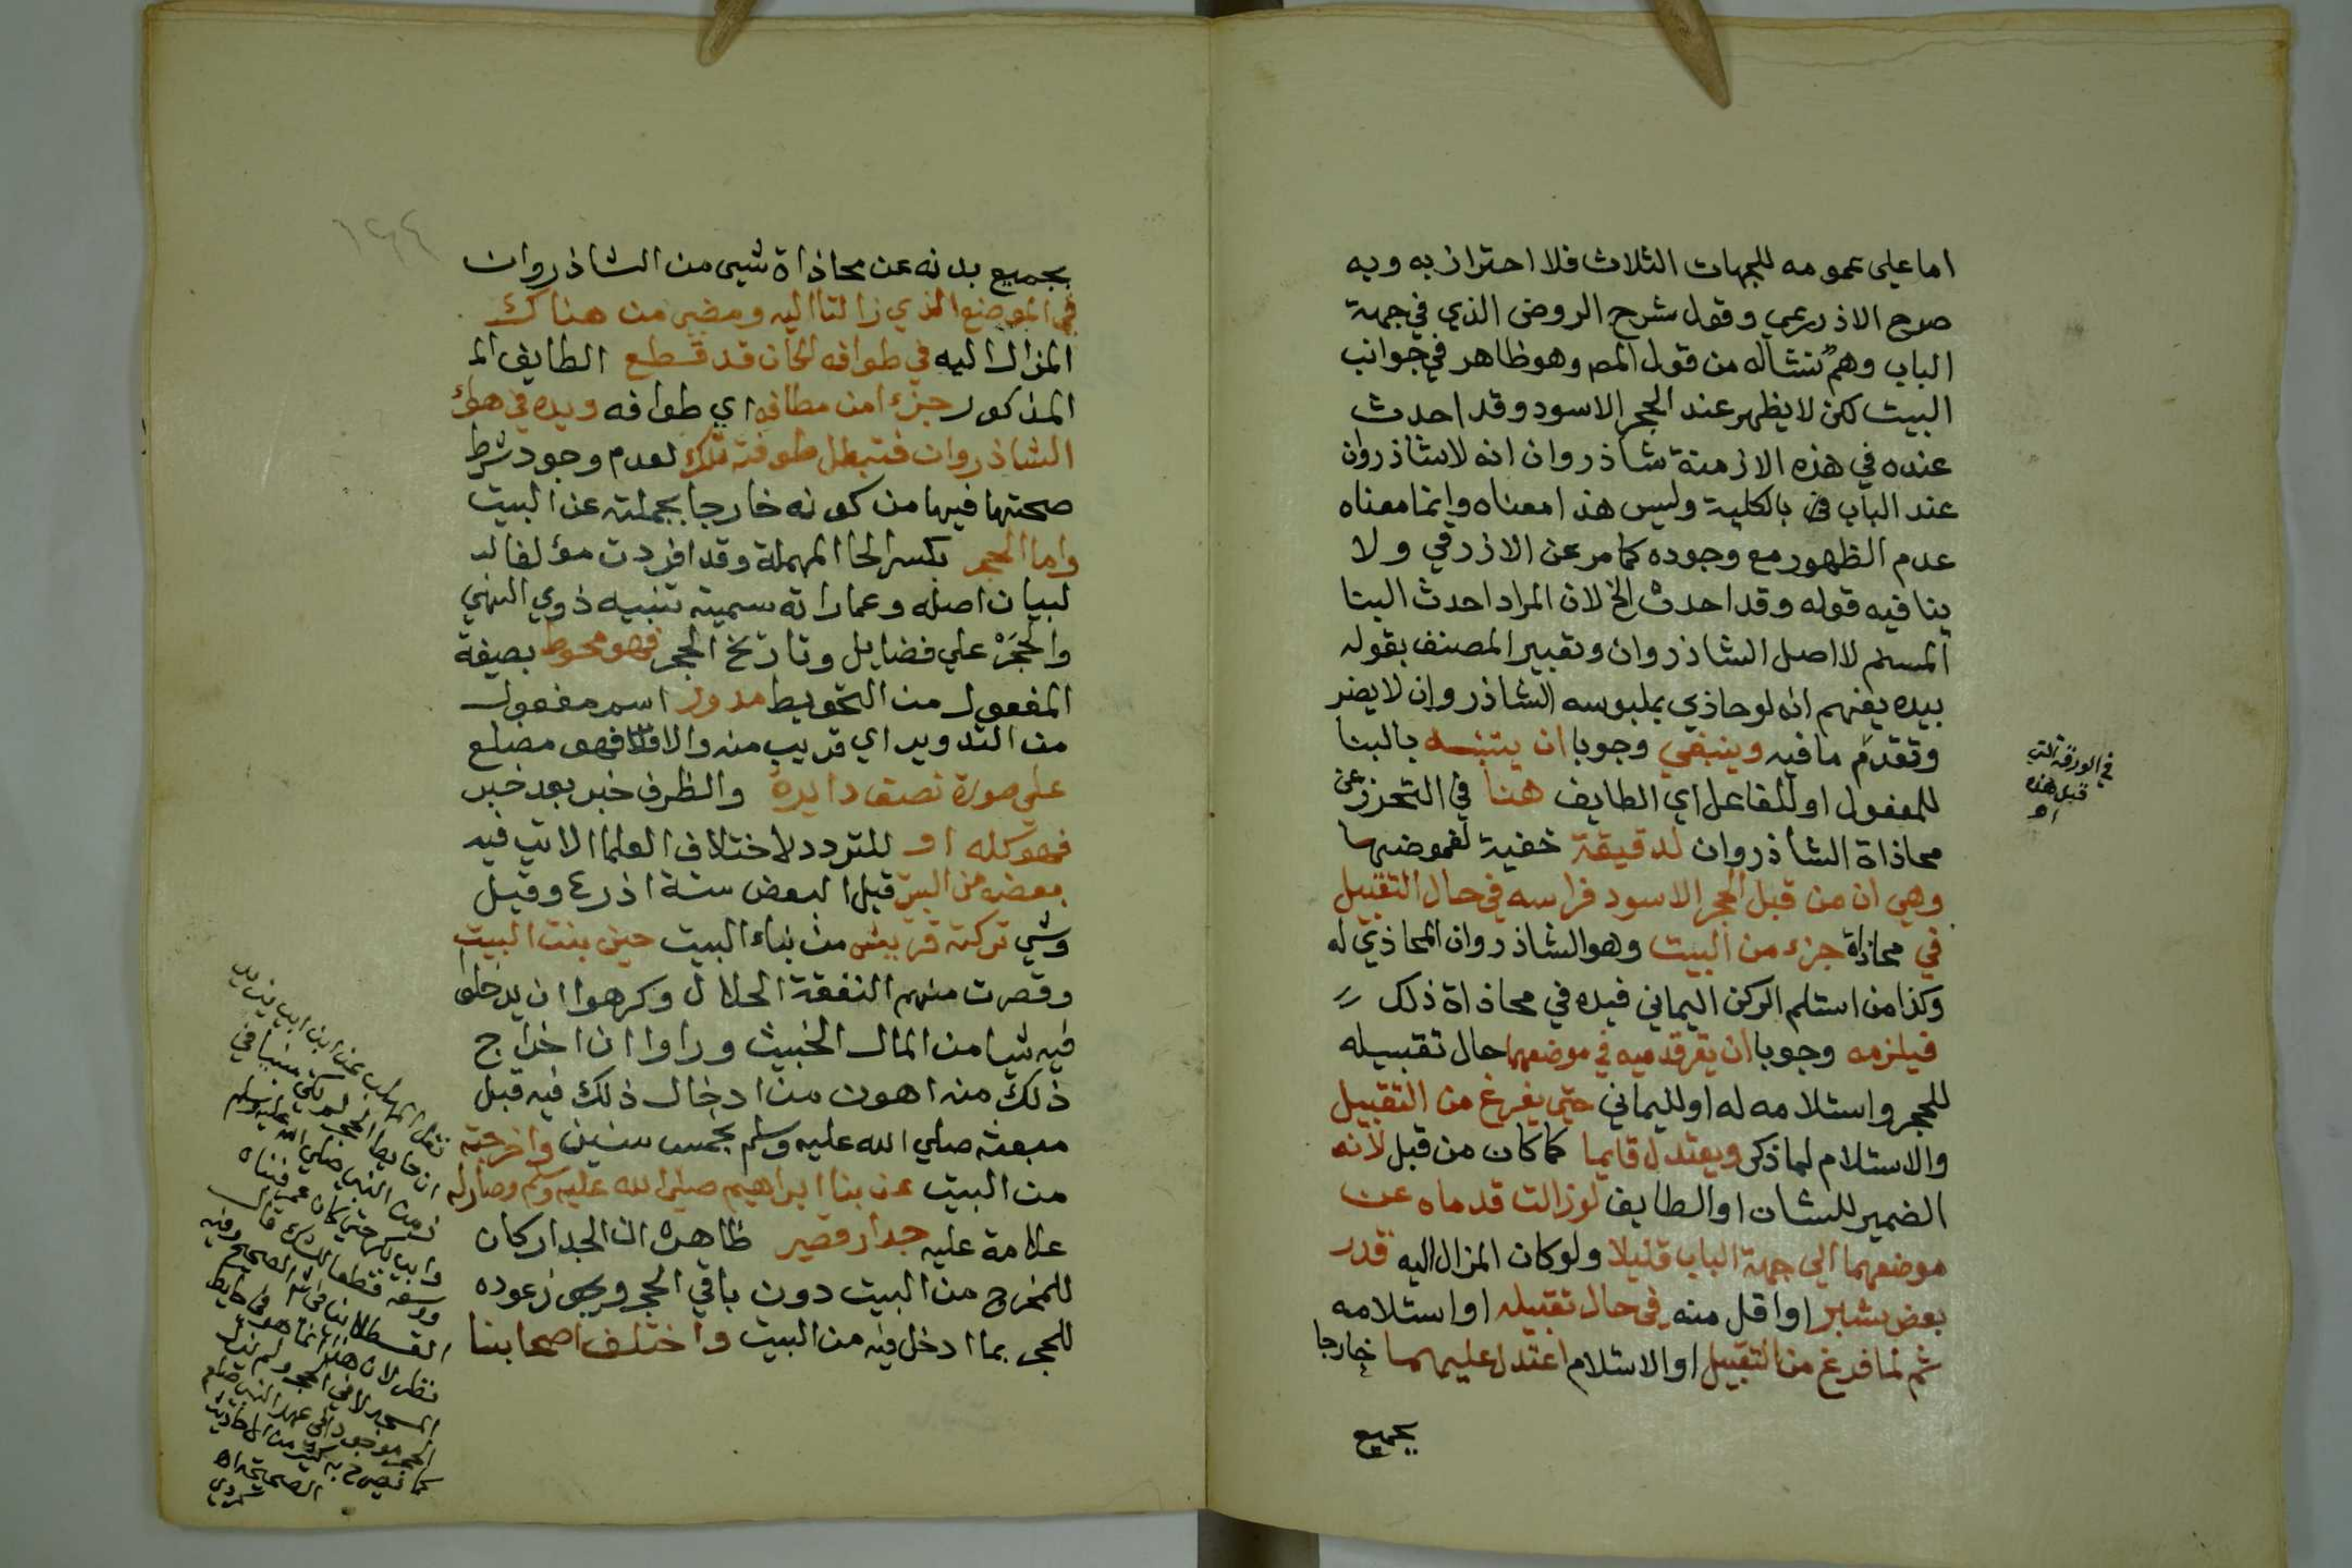 اما على عمومه للجهات الثلاث فلا احتراز به وبه
صرح الاذرعي وقول شرح الروض الذي في جهة
الباب وهم نشاله من قول المص وهو ظاهر في جوانب
البيت لكن لا يظهر عند الحجر الاسود وقد احدث
عنده في هذه الازمنة شاذروان انه لا شاذروان
عند الباب بالكلية وليس هذا معناه وانما معناه
عدم الظهور مع وجوده كما مر عن الازرقي ولا
ينافيه قوله وقد احدث الخ لان المراد احدث البنا
المسنم لا اصل الشاذروان وتعبير المصنف بقوله
بيده يفهم انه لو حاذي بملبوسه الشاذروان لا يضر
وتقدم ما فيه وينبغي وجوبا ان يتنبه بالبنا
للمفعول او للفاعل اي الطايف هنا في التحرز عن
محاذاة الشاذروان لدقيقة خفية لغموضها
وهي ان من قبل الحجر الاسود فراسه في حال التقبيل
في محاذاة جزء من البيت وهو الشاذروان المحاذي له
وكذا من استلم الركن اليماني فيده في محاذاة ذلك
فيلزمه وجوبا ان يقر قدميه في موضعهما حال تقبيله
للحجر واستلامه له او لليماني حتي يفرغ من التقبيل
والاستلام لما ذكر ويعتدل قايما كما كان من قبل لانه
الضمير للشان او الطايف لو زالت قدماه عن
موضعهما الي جهة الباب قليلا ولو كان المزال اليه قدر
بعض شبر او اقل منه في حال تقبيله او استلامه
ثم لما فرغ من التقبيل او الاستلام اعتدل عليهما خارجا
بجميع
في الورقة التي
قبل هذه
اه
١٤٤
بجميع بدنه عن محاذاة شيء من الشاذروان
في الموضع الذي زالتا اليه ومضي من هناك
المزال اليه في طوافه لكان قد قطع الطايف الم
المذكور جزءا من مطافه اي طوافه ويده في هواء
الشاذروان فتبطل طوفته تلك لعدم وجود شرط
صحتها فيها من كونه خارجا بجملته عن البيت
واما الحجر بكسر الحا المهملة وقد افردت مؤلفا له
لبيان اصله وعماراته سميته تنبيه ذوي النهي
والحجر علي فضايل وتاريخ الحجر فهو محوط بصيغة
المفعول من التحويط مدور اسم مفعول
من التدوير اي قريب منه والا فهو مضلع
علي صورة نصف دايرة والظرف خبر بعد خبر
فهو كله او للتردد لاختلاف العلما الاتي فيه
بعضه من البيت قيل البعض ستة اذرع وقيل
وشي تركته قريش من بناء البيت حين بنت البيت
وقصرت منهم النفقة الحلال وكرهوا ان يدخلوا
فيه شيا من المال الخبيث وراوا ان اخراج
ذلك منه اهون من ادخال ذلك فيه قبل
مبعثه صلي الله عليه وسلم بخمس سنين واخرجته
من البيت عن بنا ابراهيم صلي الله عليه وسلم وصار له
علامة عليه جدار قصير ظاهره ان الجدار كان
للمخرج من البيت دون باقي الحجر ويجوز عوده
للحجر بما ادخل فيه من البيت واختلف اصحابنا
نقل المهلب عن ابن ابي يزيد
ان حايط الحجر لم يكن مبنيا في
زمن النبي صلي الله عليه وسلم
وابي بكر حتي كان عمر فبناه
ووسعه قطعا للشك قال
القسطلاني في الصحيح وفيه
نظر لان هذا انما هو في حايط
المسجد لا في الحجر ولم يزل
الحجر موجودا في عهد النبي صلعم
كما يصرح به كثير من الاحاديث
الصحيحة اه
كردي